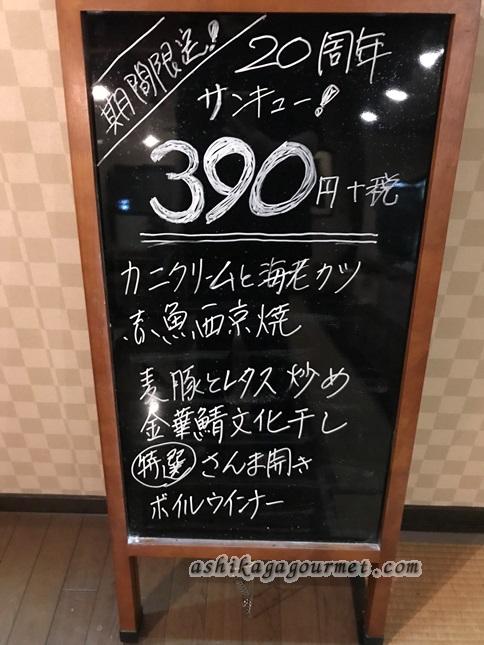 期間限定!
20周年
サンキュー!
390円+税
カニクリームと海老カツ
赤魚西京焼
麦豚とレタス炒め
金華鯖文化干し
特選 さんま開き
ボイルウインナー
ashikagagourmet.com